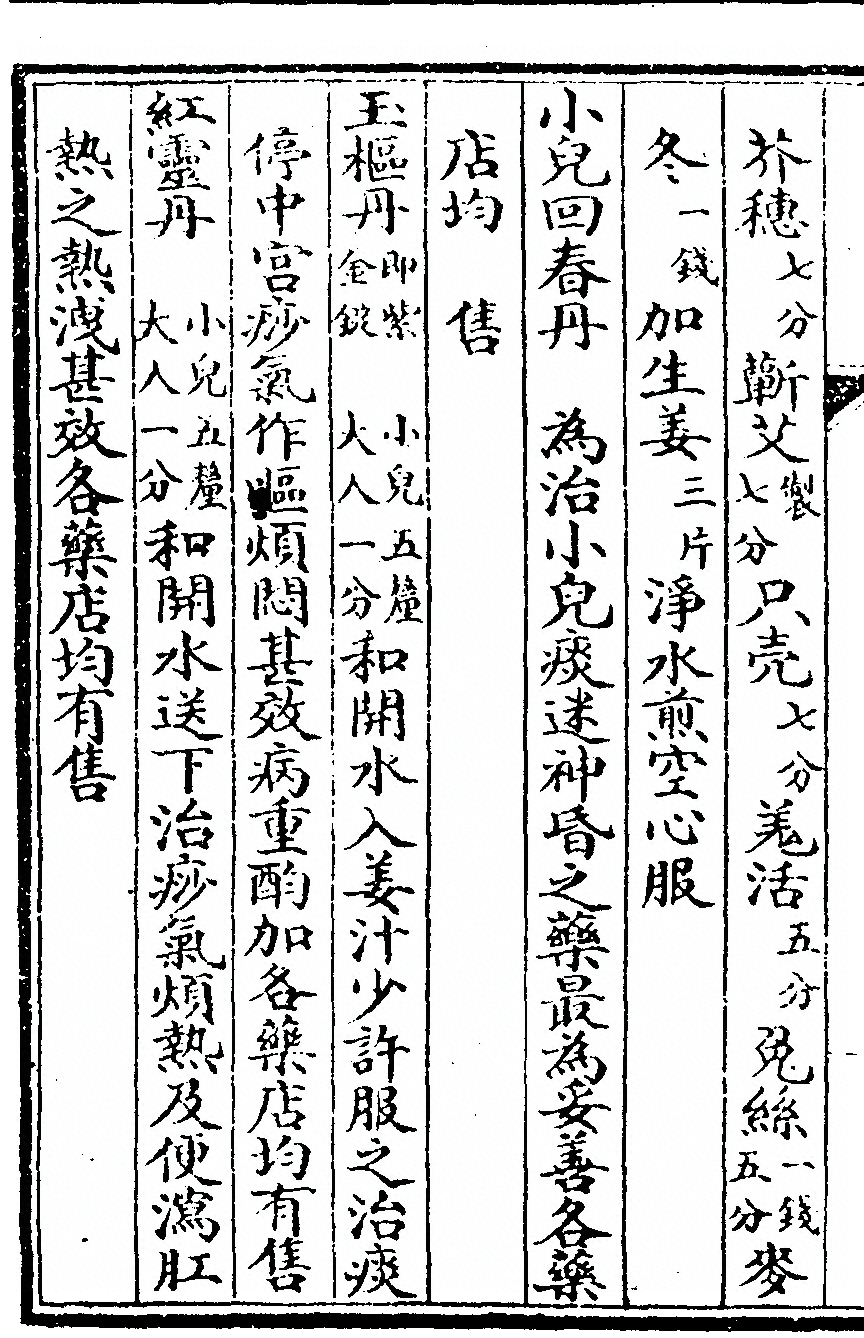 芥穗七分蘄艾製七分只壳七分羗活五分兔絲一錢五分麥
冬一錢加生姜三片淨水煎空心服
小兒回春丹　為治小兒痰迷神昏之藥最為妥善各藥
店均　售
玉樞丹即紫金錠　小兒五釐大人一分和開水入姜汁少許服之治痰
停中宮痧氣作嘔煩悶甚效病重酌加各藥店均有售
紅靈丹　小兒五釐大人一分和開水送下治痧氣煩熱及便瀉肛
熱之熱洩甚效各藥店均有售